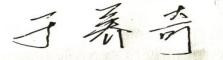 于养奇